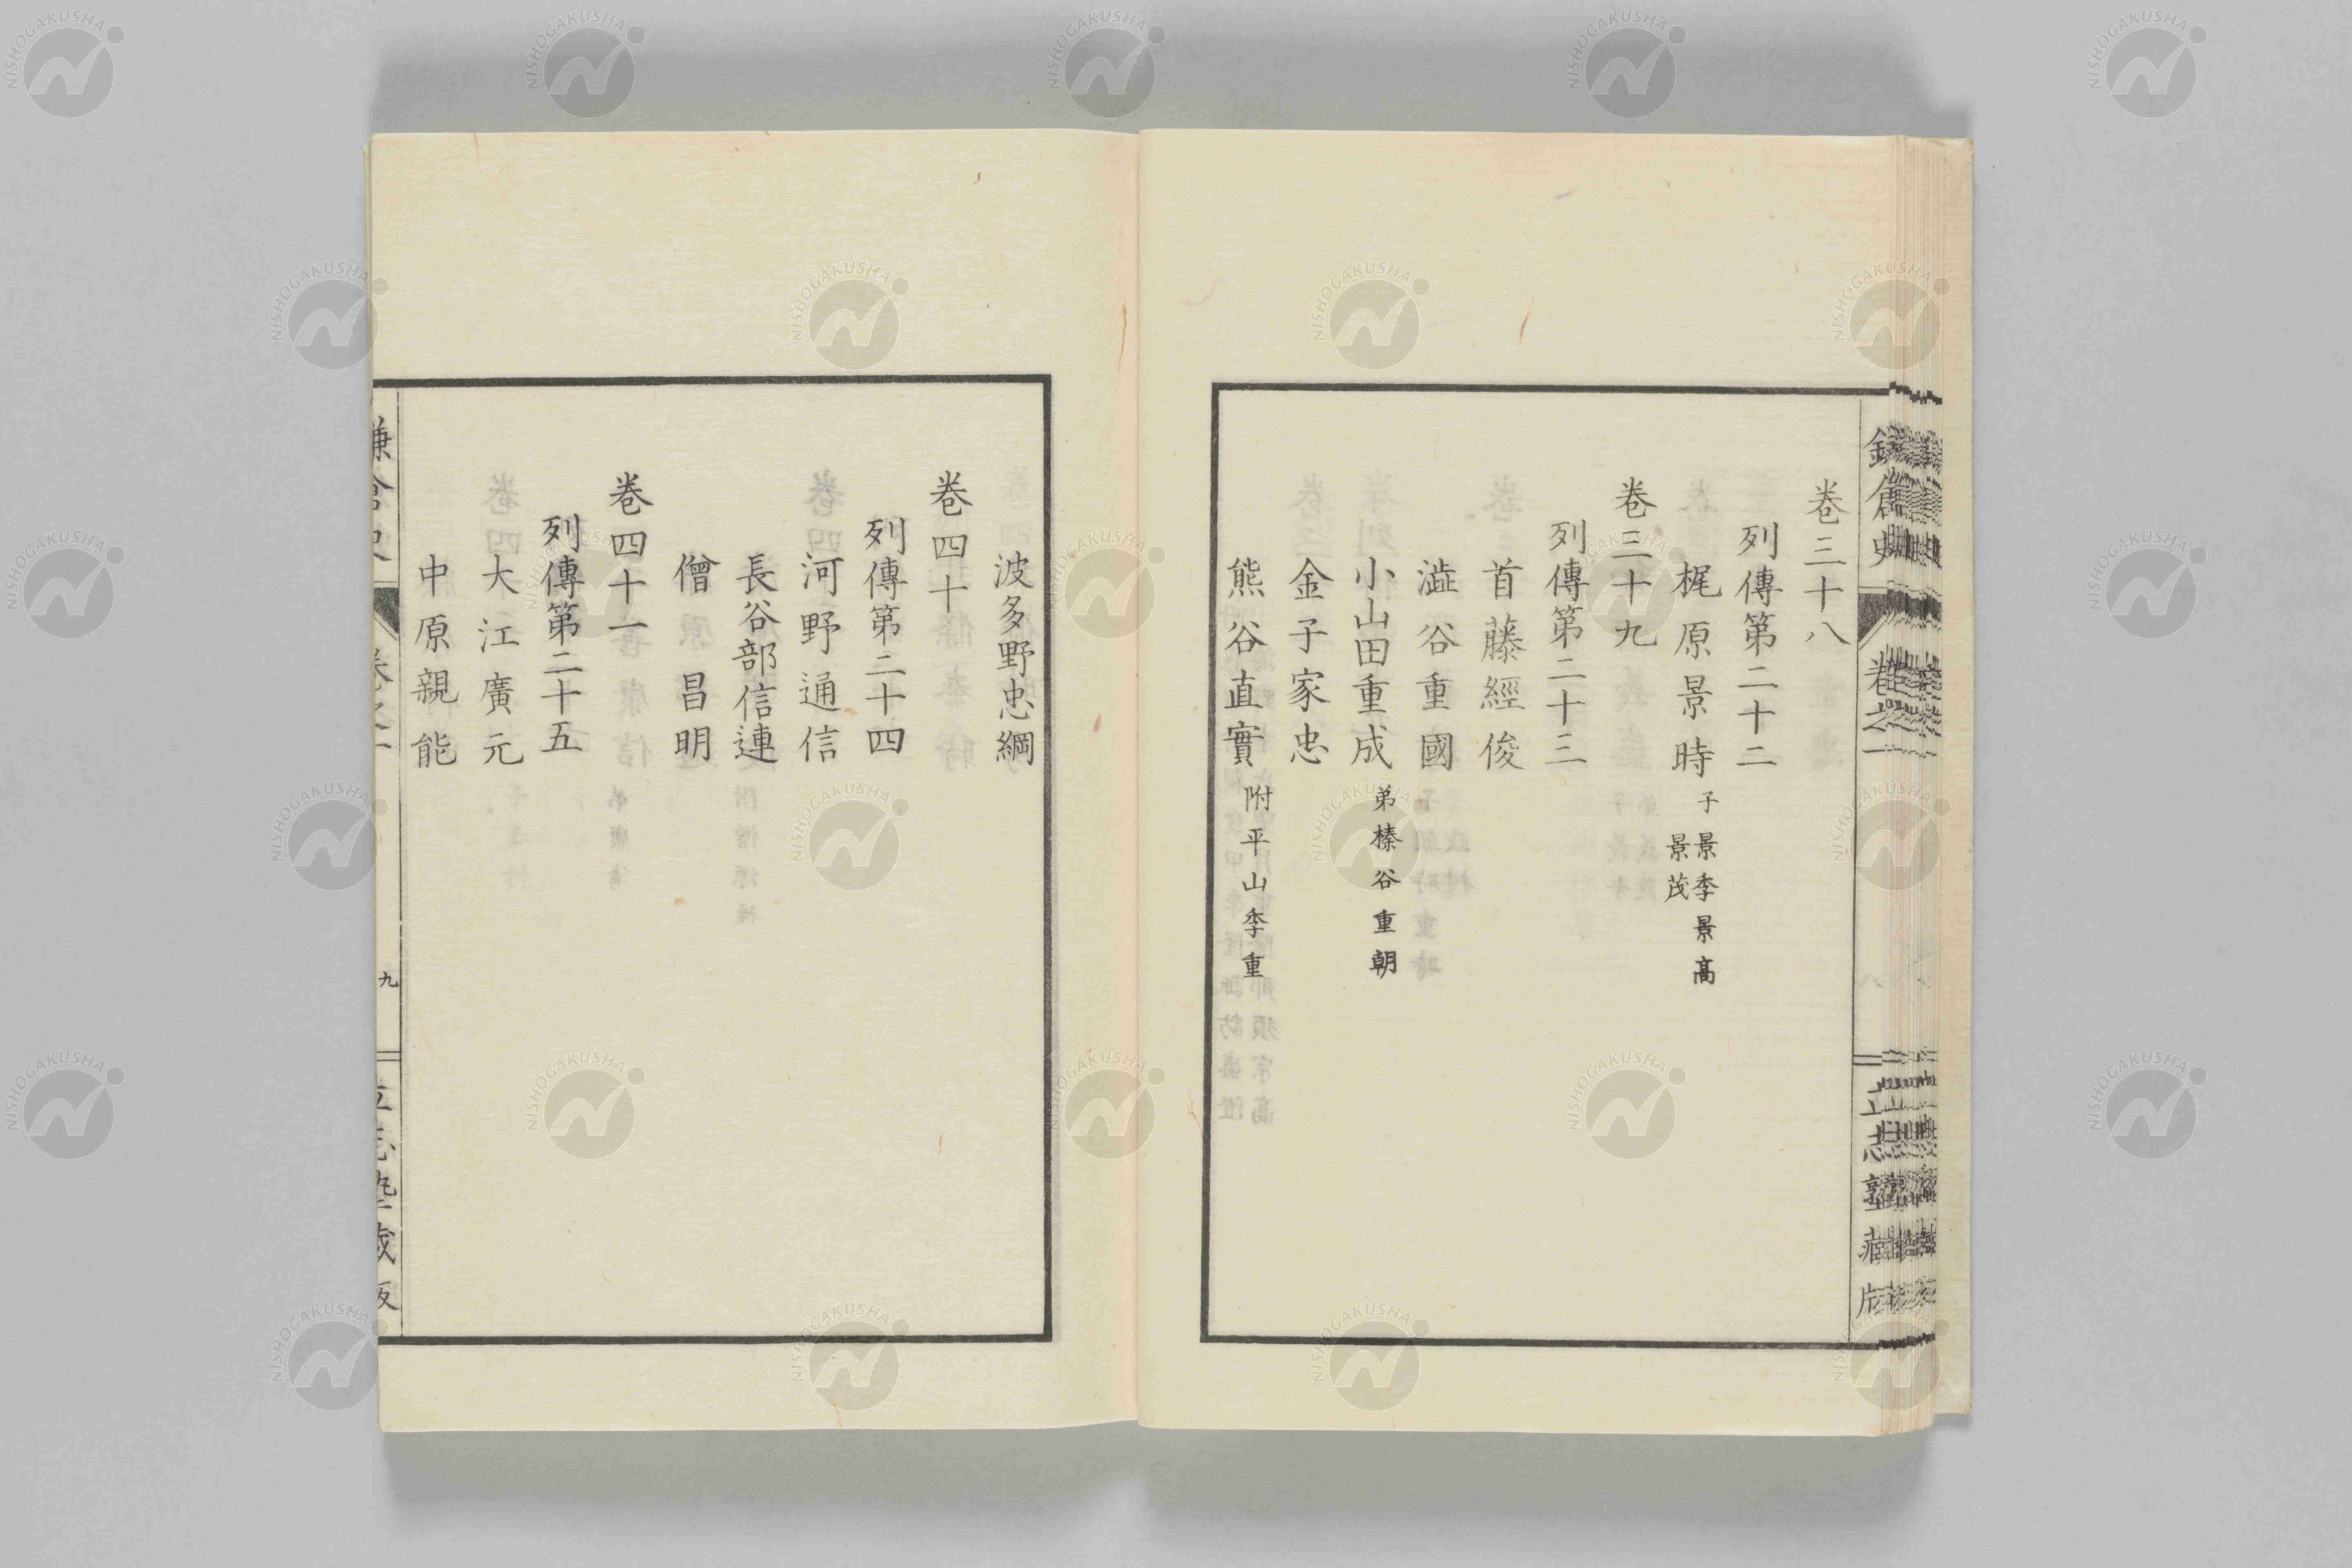 卷三十八
列傳第二十二
梶原景時 子景季景高
景茂
卷三十九
列傳第二十三
首藤經俊
澁谷重國
小山田重成 弟榛谷重朝
金子家忠
熊谷直實 附平山季重
波多野忠綱
卷四十
列傳第二十四
河野通信
長谷部信連
僧昌明
卷四十一
列傳第二十五
大江廣元
中原親能
九
NISHOGAKUSHA